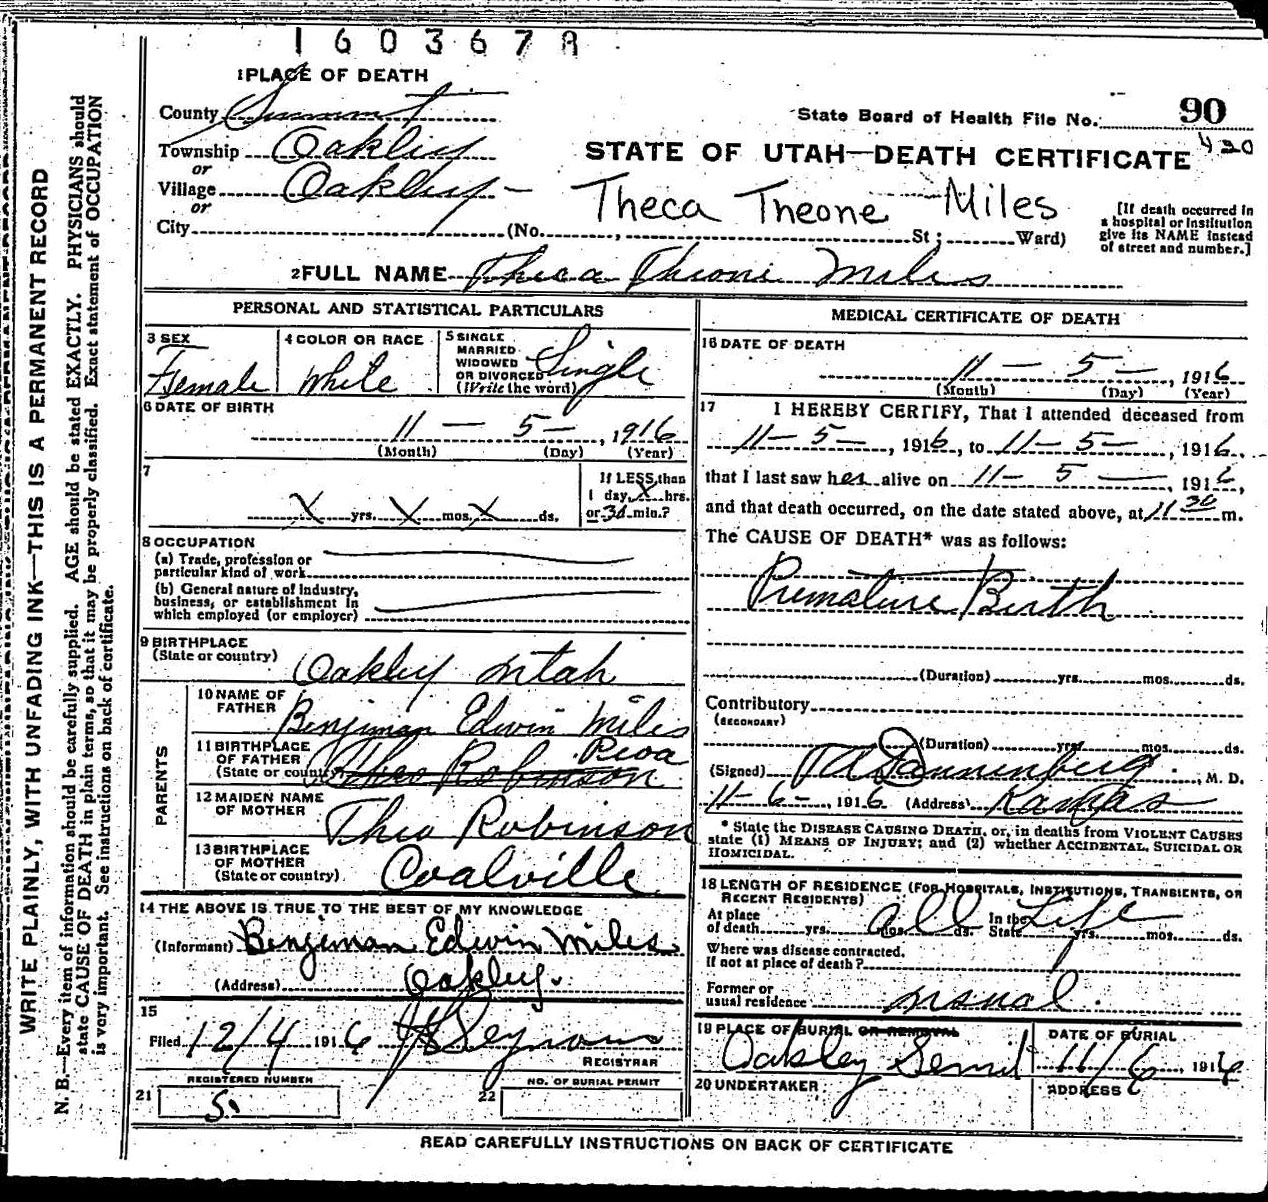 1603678
1 PLACE OF DEATH
County Summit
State Board of Health File No. 90
420
Township Oakley
or
Village Oakley
or
City (No. , St; Ward)
STATE OF UTAH—DEATH CERTIFICATE
Theca Theone Miles
[If death occurred in a hospital or institution give its NAME instead of street and number.]
2 FULL NAME Theca Theone Miles
PERSONAL AND STATISTICAL PARTICULARS
3 SEX Female
4 COLOR OR RACE White
5 SINGLE MARRIED WIDOWED OR DIVORCED (Write the word) Single
6 DATE OF BIRTH
11 — 5 —, 1916
(Month) (Day) (Year)
7 X yrs. X mos. X ds.
If LESS than 1 day, X hrs. or 30 min.?
8 OCCUPATION
(a) Trade, profession or particular kind of work
(b) General nature of industry, business, or establishment in which employed (or employer)
9 BIRTHPLACE (State or country) Oakley Utah
PARENTS
10 NAME OF FATHER Benjiman Edwin Miles
11 BIRTHPLACE OF FATHER (State or country) Peoa
Theo Robinson
12 MAIDEN NAME OF MOTHER Theo Robinson
13 BIRTHPLACE OF MOTHER (State or country) Coalville
14 THE ABOVE IS TRUE TO THE BEST OF MY KNOWLEDGE
(Informant) Benjiman Edwin Miles
(Address) Oakley.
15
Filed 12/4 1916
REGISTRAR
REGISTERED NUMBER
21 5.
NO. OF BURIAL PERMIT
22
MEDICAL CERTIFICATE OF DEATH
16 DATE OF DEATH
11 — 5 —, 1916
(Month) (Day) (Year)
17 I HEREBY CERTIFY, That I attended deceased from
11 — 5 —, 1916, to 11 — 5 —, 1916.
that I last saw her alive on 11 — 5 —, 1916,
and that death occurred, on the date stated above, at 11 30 m.
The CAUSE OF DEATH* was as follows:
Premature Birth
(Duration) yrs. mos. ds.
Contributory
(SECONDARY)
(Duration) yrs. mos. ds.
(Signed) Dannenberg, M. D.
11 — 6 —, 1916 (Address) Kamas
* State the DISEASE CAUSING DEATH, or, in deaths from VIOLENT CAUSES
state (1) MEANS OF INJURY; and (2) whether ACCIDENTAL, SUICIDAL OR
HOMICIDAL.
18 LENGTH OF RESIDENCE (FOR HOSPITALS, INSTITUTIONS, TRANSIENTS, OR
RECENT RESIDENTS)
At place of death yrs. mos. ds. all In the State Life yrs. mos. ds.
Where was disease contracted, If not at place of death?
Former or usual residence usual.
19 PLACE OF BURIAL OR REMOVAL
Oakley
DATE OF BURIAL
11/6, 1916
20 UNDERTAKER
ADDRESS
READ CAREFULLY INSTRUCTIONS ON BACK OF CERTIFICATE
WRITE PLAINLY, WITH UNFADING INK—THIS IS A PERMANENT RECORD
N. B.—Every item of information should be carefully supplied. AGE should be stated EXACTLY. PHYSICIANS should
state CAUSE OF DEATH in plain terms, so that it may be properly classified. Exact statement of OCCUPATION
is very important. See instructions on back of certificate.